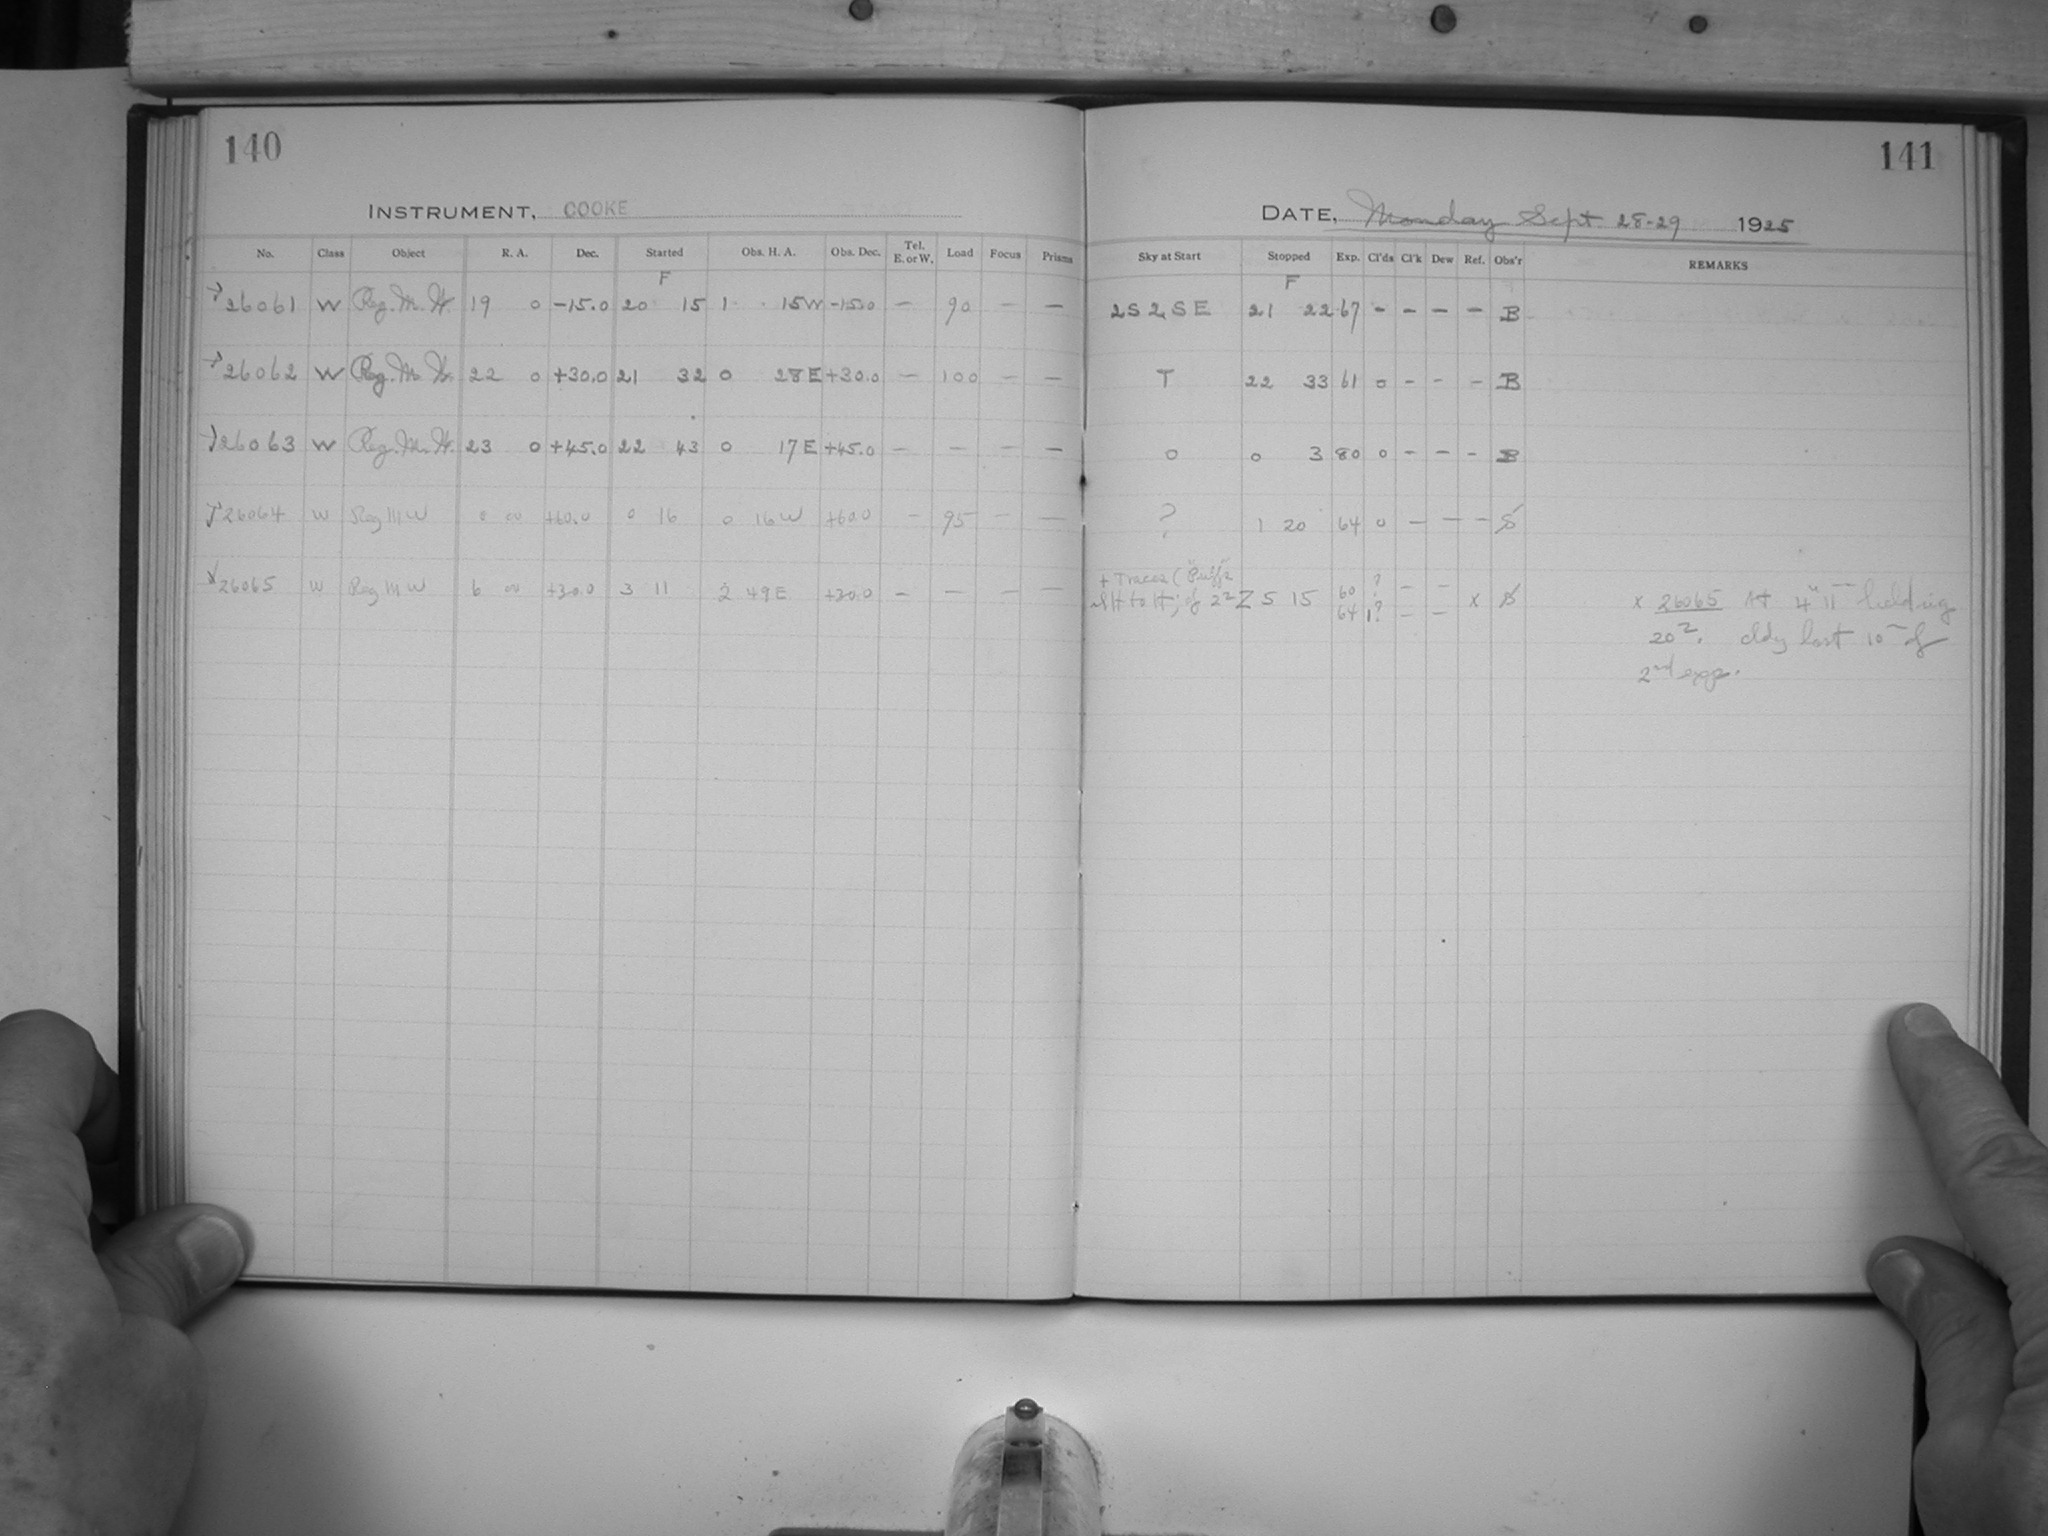 140
INSTRUMENT, COOKE
No. Class Object R. A. Dec. Started Obs. H. A. Obs. Dec. Tel. E. or W. Load Focus Prisms
F
26061 W Reg. M. W. 19 0 -15.0 20 15 1 15W -15.0 — 90 — —
26062 W Reg. M. W. 22 0 +30.0 21 32 0 28E +30.0 — 100 — —
26063 W Reg. M. W. 23 0 +45.0 22 43 0 17E +45.0 — — — —
26064 W Reg M W 0 00 +60.0 0 16 0 16W +60.0 — 95 — —
26065 W Reg M W 6 00 +30.0 3 11 2 49E +30.0 — — — —
141
DATE, Monday Sept. 28-29 1925
Sky at Start Stopped Exp. Cl'ds Cl'k Dew Ref. Obs'r REMARKS
F
2S2SE 21 22 67 - - - - B
T 22 33 61 0 - - - B
0 0 3 80 0 - - - B
? 1 20 64 0 - - -
+ Traces ("Puffs"
Z 5 15 60 ? - -
64 1? - - x
x 26065 At 4 11
20 . cldy lost 10 of
2nd exp.